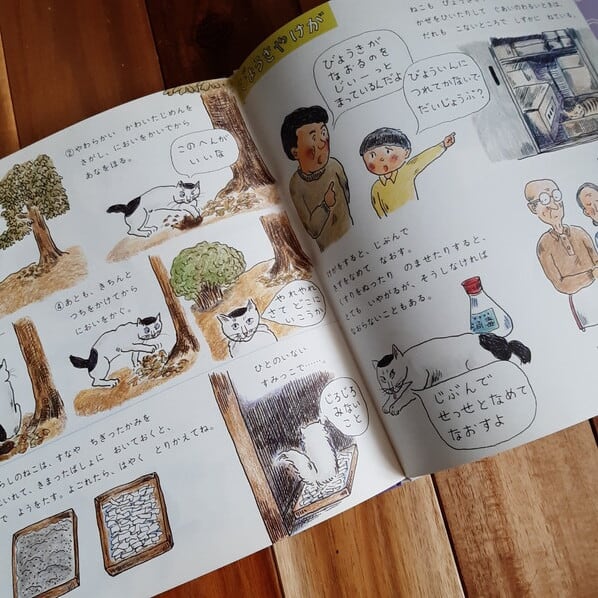 ②やわらかい かわいたじめんを
さがし、においをかいでから
あなをほる。
このへんが
いいな
④あとも、きちんと
つちをかけてから
においをかぐ。
やれやれ
さてどこに
いこうか
ひとのいない
すみっこで……。
じろじろ
みない
こと
らしのねこは、すなや ちぎったかみを
にいれて、きまったばしょに おいておくと、
で ようをたす。よごれたら、はやく とりかえてね。
びょうきやけが
ねこも びょうき
かぜをひいたりして ぐあいのわるいときは、
だれも こないところで しずかに ねている。
びょうきが
なおるのを
じいーっと
まっているんだよ
びょういんに
つれてかないで
だいじょうぶ?
けがをすると、じぶんで
きずをなめて なおす。
くすりをぬったり のませたりすると、
とても いやがるが、そうしなければ
なおらないこともある。
じぶんで
せっせとなめて
なおすよ